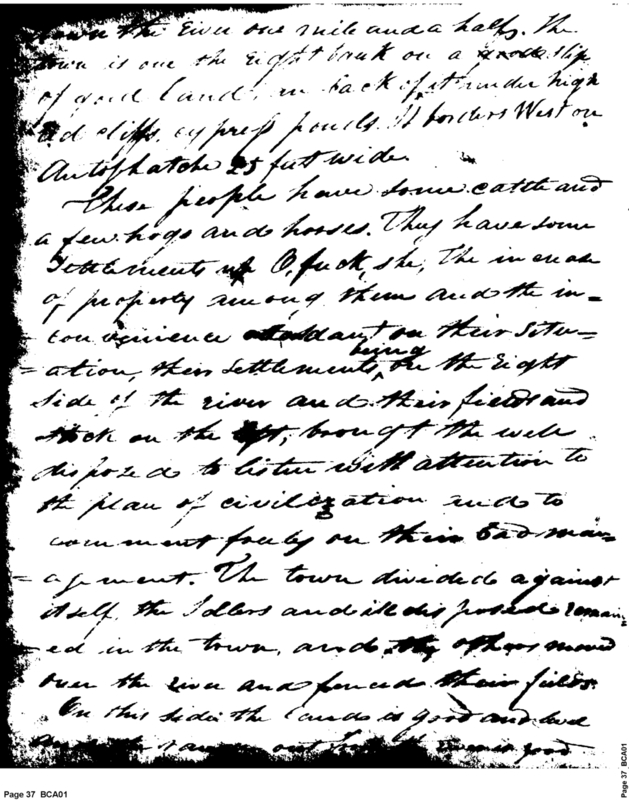 down the river one mile and a half. The
town is one the right bank on a good slip
of good land, in back of it under high
red cliffs, cypress ponds. It borders West on
Autoshatche 25 feet wide.
These people have some cattle and
a few hogs and horses. They have some
settlements up O, fuck, she, The increase
of property among them and the in-
convenience attendant on their situ-
-ation, their settlements, being on the right
side of the river and their fields and
stock on the left, brought the well
disposed to listen with attention to
the plan of civilization and to
comment freely on their bad man-
-agement. The town divided against
itself, the Idlers and ill disposed remain-
-ed in the town, and the others moved
over the river and fenced their fields.
On this side the lands is good and level
out from the river is good
Page 37 BCA01
Page 37 BCA01